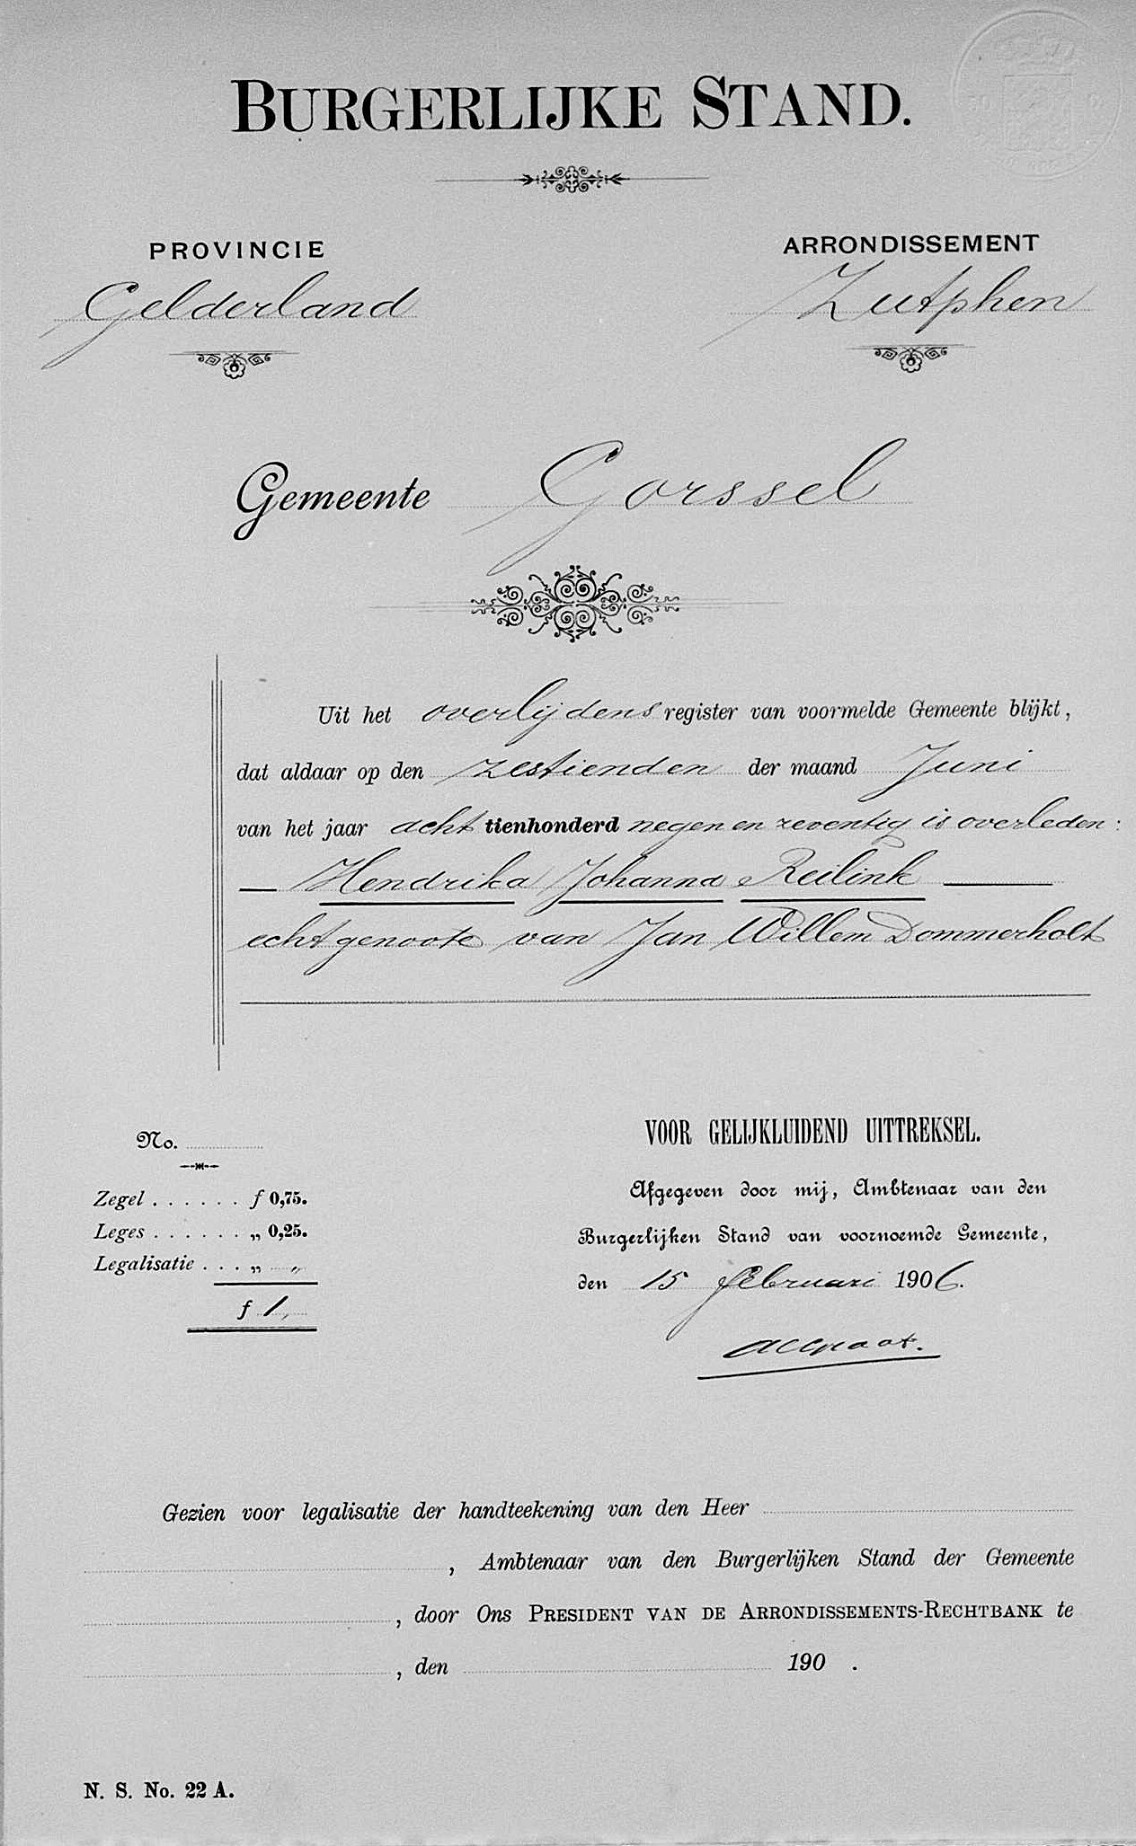 BURGERLIJKE STAND.
PROVINCIE
Gelderland
ARRONDISSEMENT
Zutphen
Gemeente Gorssel
Uit het overlijdens register van voormelde Gemeente blijkt,
dat aldaar op den zestienden der maand Juni
van het jaar acht tienhonderd negen en zeventig is overleden:
Hendrika Johanna Reilink
echtgenoote van Jan Willem Dommerholt
No.
Zegel . . . . . . ƒ 0,75.
Leges . . . . . . „ 0,25.
Legalisatie . . . „ „
ƒ 1,
VOOR GELIJKLUIDEND UITTREKSEL.
Afgegeven door mij, Ambtenaar van den
Burgerlijken Stand van voornoemde Gemeente,
den 15 februari 1906.
Gezien voor legalisatie der handteekening van den Heer
, Ambtenaar van den Burgerlijken Stand der Gemeente
, door Ons PRESIDENT VAN DE ARRONDISSEMENTS-RECHTBANK te
, den 190 .
N. S. No. 22 A.